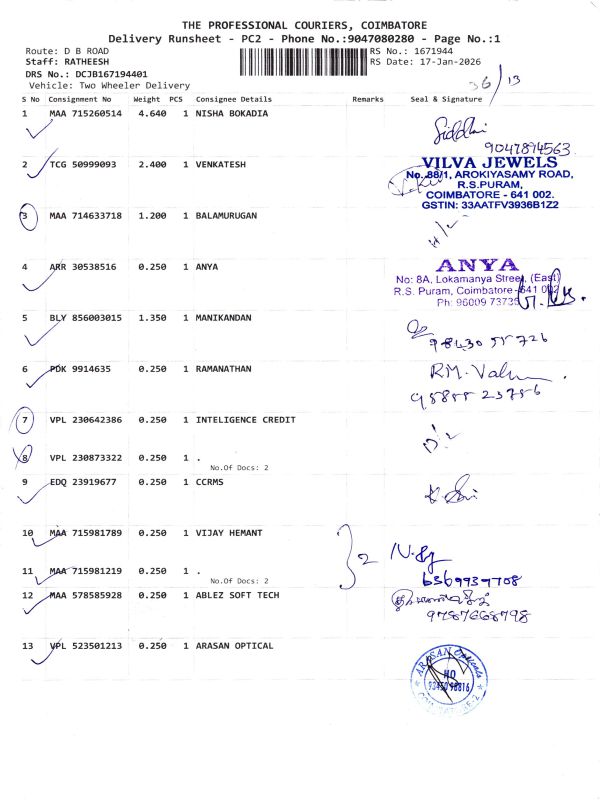 THE PROFESSIONAL COURIERS, COIMBATORE
Delivery Runsheet - PC2 - Phone No.:9047080280 - Page No.:1
Route: D B ROAD RS No.: 1671944
Staff: RATHEESH RS Date: 17-Jan-2026
DRS No.: DCJB167194401
Vehicle: Two Wheeler Delivery
36/13
S No Consignment No Weight PCS Consignee Details Remarks Seal & Signature
1 MAA 715260514 4.640 1 NISHA BOKADIA
Siddhi
9047894563
2 TCG 50999093 2.400 1 VENKATESH
VILVA JEWELS
No. 88/1, AROKIYASAMY ROAD,
R.S.PURAM,
COIMBATORE - 641 002.
GSTIN: 33AATFV3936B1Z2
3 MAA 714633718 1.200 1 BALAMURUGAN
4 ARR 30538516 0.250 1 ANYA
ANYA
No: 8A, Lokamanya Street, (East)
R.S. Puram, Coimbatore - 641 002
Ph: 96009 73735
5 BLY 856003015 1.350 1 MANIKANDAN
98430 55726
6 PDK 9914635 0.250 1 RAMANATHAN
RM.
95855 23756
7 VPL 230642386 0.250 1 INTELIGENCE CREDIT
8 VPL 230873322 0.250 1 .
No.Of Docs: 2
9 EDQ 23919677 0.250 1 CCRMS
10 MAA 715981789 0.250 1 VIJAY HEMANT
2
11 MAA 715981219 0.250 1 .
6369937708
No.Of Docs: 2
12 MAA 578585928 0.250 1 ABLEZ SOFT TECH
9787668798
13 VPL 523501213 0.250 1 ARASAN OPTICAL
ARASAN Opticals
HO
93450 98816